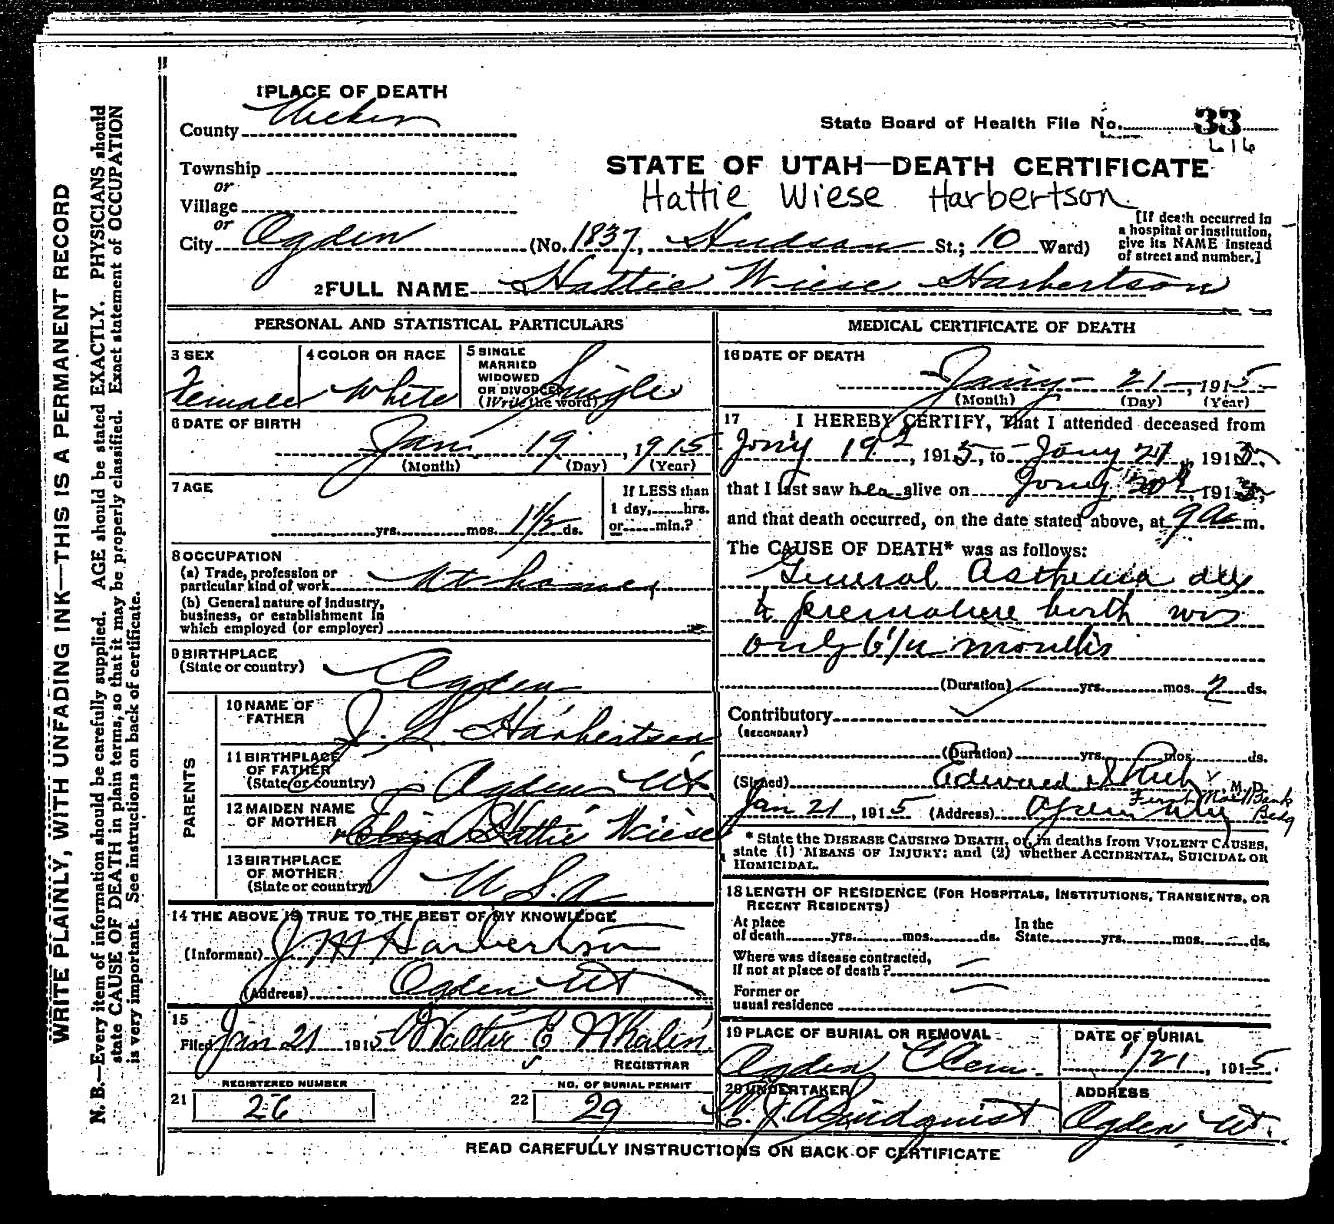 1 PLACE OF DEATH
County Weber
State Board of Health File No. 33
616
Township
STATE OF UTAH—DEATH CERTIFICATE
or
Village
Hattie Wiese Harbertson
or
City Ogden (No. 1837, Hudson St.; 10 Ward)
[If death occurred in a hospital or institution, give its NAME instead of street and number.]
2 FULL NAME Hattie Wiese Harbertson
PERSONAL AND STATISTICAL PARTICULARS
3 SEX
Female
4 COLOR OR RACE
White
5 SINGLE
MARRIED
WIDOWED
OR DIVORCED
(Write the word)
Single
6 DATE OF BIRTH
Jan. 19, 1915
(Month) (Day) (Year)
7 AGE
yrs. mos. 1 1/2 ds.
If LESS than
1 day, hrs.
or min.?
8 OCCUPATION
(a) Trade, profession or
particular kind of work At home
(b) General nature of industry,
business, or establishment in
which employed (or employer)
9 BIRTHPLACE
(State or country) Ogden
PARENTS
10 NAME OF
FATHER J. L. Harbertson
11 BIRTHPLACE
OF FATHER
(State or country) Ogden Ut.
12 MAIDEN NAME
OF MOTHER Eliza Hattie Wiese
13 BIRTHPLACE
OF MOTHER
(State or country) U.S.A
14 THE ABOVE IS TRUE TO THE BEST OF MY KNOWLEDGE
(Informant) J H Harbertson
(Address) Ogden Ut
15
Filed Jan 21 1915 Walter E Whalen
REGISTRAR
REGISTERED NUMBER
21 26
NO. OF BURIAL PERMIT
22 29
MEDICAL CERTIFICATE OF DEATH
16 DATE OF DEATH
Jany 21, 1915
(Month) (Day) (Year)
17 I HEREBY CERTIFY, That I attended deceased from
Jany 19, 1915, to Jany 21, 1915,
that I last saw her alive on Jany 20th, 1915,
and that death occurred, on the date stated above, at 9 a m.
The CAUSE OF DEATH* was as follows:
General Asthenia due
to premature birth was
only 6 1/4 months
(Duration) yrs. mos. 2 ds.
Contributory
(SECONDARY)
(Duration) yrs. mos. ds.
(Signed) Edward I Rich M. D.
Jan 21, 1915 (Address) Ogden Utah First Natl Bank Bldg
* State the DISEASE CAUSING DEATH, or, in deaths from VIOLENT CAUSES,
state (1) MEANS OF INJURY; and (2) whether ACCIDENTAL, SUICIDAL OR
HOMICIDAL.
18 LENGTH OF RESIDENCE (FOR HOSPITALS, INSTITUTIONS, TRANSIENTS, OR
RECENT RESIDENTS)
At place
of death yrs. mos. ds.
In the
State yrs. mos. ds.
Where was disease contracted,
if not at place of death?
Former or
usual residence
19 PLACE OF BURIAL OR REMOVAL
Ogden Cem.
DATE OF BURIAL
1/21, 1915.
20 UNDERTAKER
C. J. A. Lindquist
ADDRESS
Ogden Ut.
READ CAREFULLY INSTRUCTIONS ON BACK OF CERTIFICATE
WRITE PLAINLY, WITH UNFADING INK—THIS IS A PERMANENT RECORD
N. B.—Every item of information should be carefully supplied. AGE should be stated EXACTLY. PHYSICIANS should
state CAUSE OF DEATH in plain terms, so that it may be properly classified. Exact statement of OCCUPATION
is very important. See instructions on back of certificate.